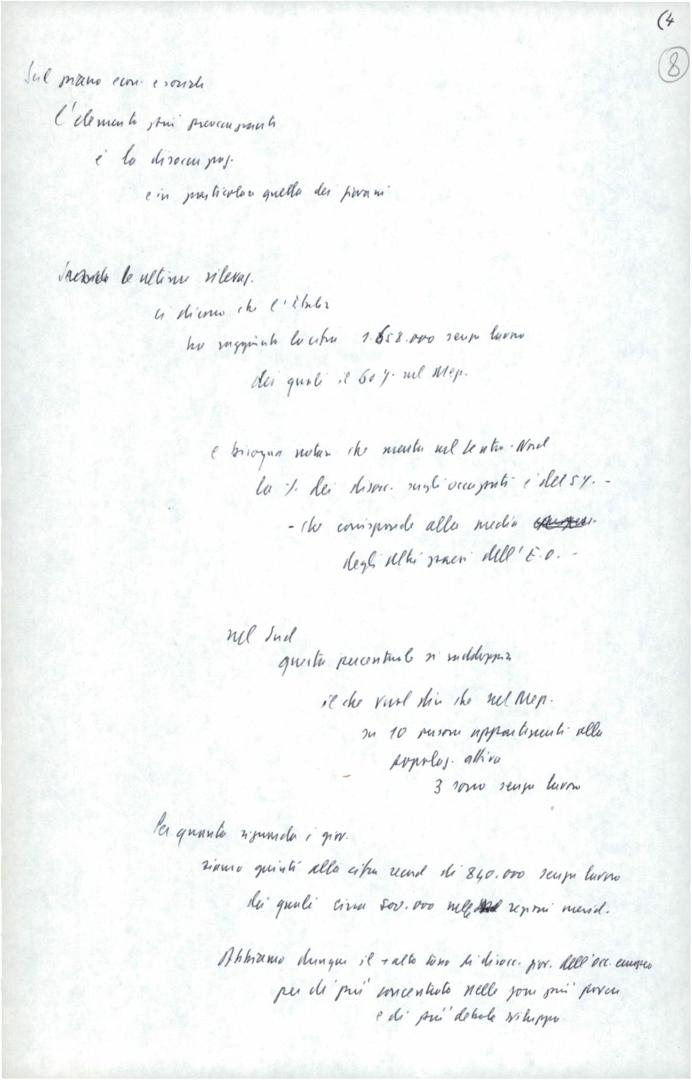 (4
8
Sul piano econ. e sociale
l'elemento più preoccupante
è la disoccupaz.
e in particolare quella dei giovani
Secondo le ultime rilevaz.
ci dicono che l'Italia
ha raggiunto la cifra 1.658.000 senza lavoro
dei quali il 60% nel Mezz.
e bisogna notare che mentre nel Centro-Nord
la % dei disocc. sugli occupati è del 5% -
- che corrisponde alla media
degli altri paesi dell'E.O. -
nel Sud
questa percentuale si raddoppia
il che vuol dire che nel Mezz.
su 10 persone appartenenti alla
popolaz. attiva
3 sono senza lavoro
Per quanto riguarda i giov.
siamo giunti alla cifra record di 840.000 senza lavoro
dei quali circa 500.000 nelle regioni merid.
Abbiamo dunque il + alto tasso di disocc. giov. dell'occ. europeo
per di più concentrato nelle zone più povere
e di più debole sviluppo